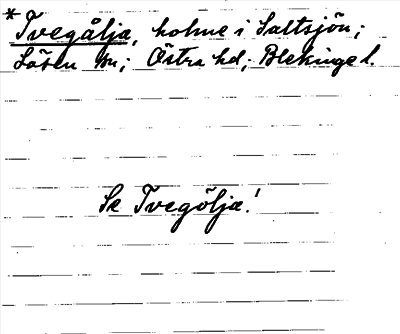 * Tvegålja, holme i Saltsjön;
Lösen sn; Östra hd; Blekinge l.
Se Tvegölja!